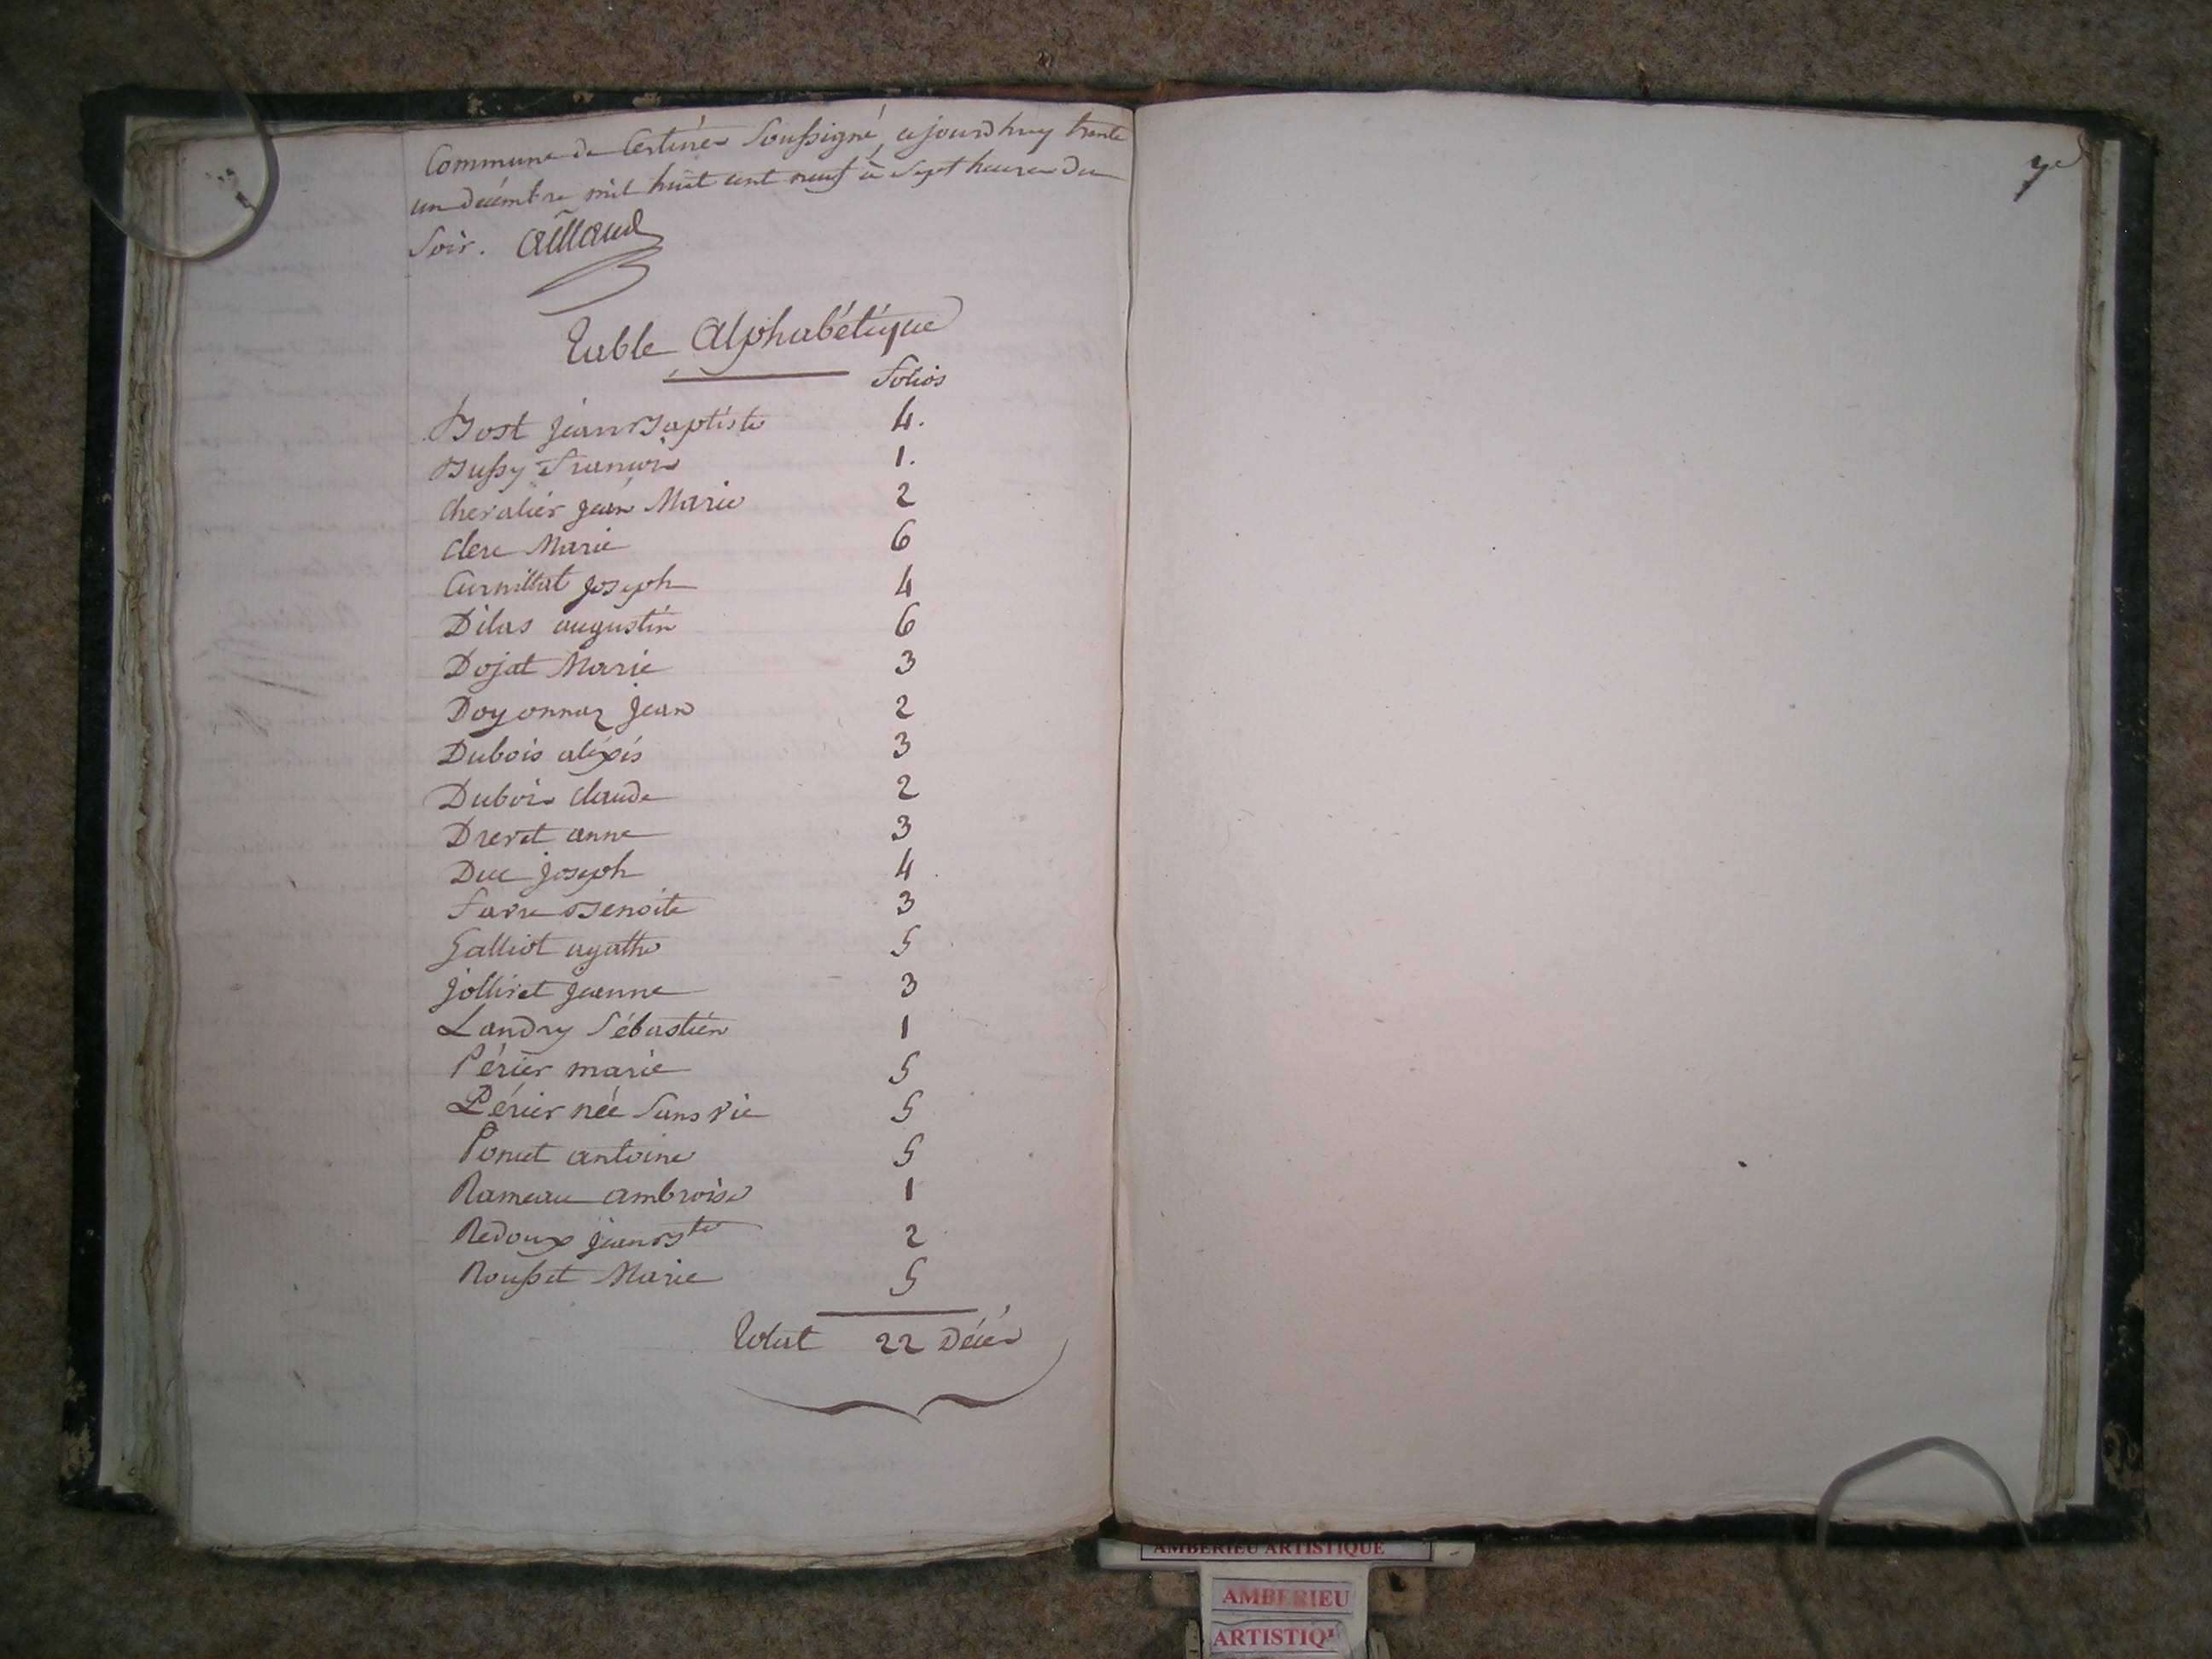 Commune de Certines Soussigné, cejourdhuy trente
un décembre mil huit cent neuf à Sept heures du
Soir. aillaud
Table Alphabétique
folios
Bost jean Baptiste 4.
Bussy François 1.
Chevalier jean Marie 2
Clerc Marie 6
Curnillat joseph 4
Dilas augustin 6
Dojat Marie 3
Doyonnaz jean 2
Dubois aléxis 3
Dubois claude 2
Drevet anne 3
Duc joseph 4
Favre Benoite 3
Galliot agathe 5
jolliret jeanne 3
Landry Sébastien 1
Périer marie 5
Périer née Sans vie 5
Poncet antoine 5
Rameau ambroise 1
Redoux jean Bte 2
Rousset Marie 5
Total 22 Décés
7e
AMBERIEU ARTISTIQUE
AMBERIEU
ARTISTIQU